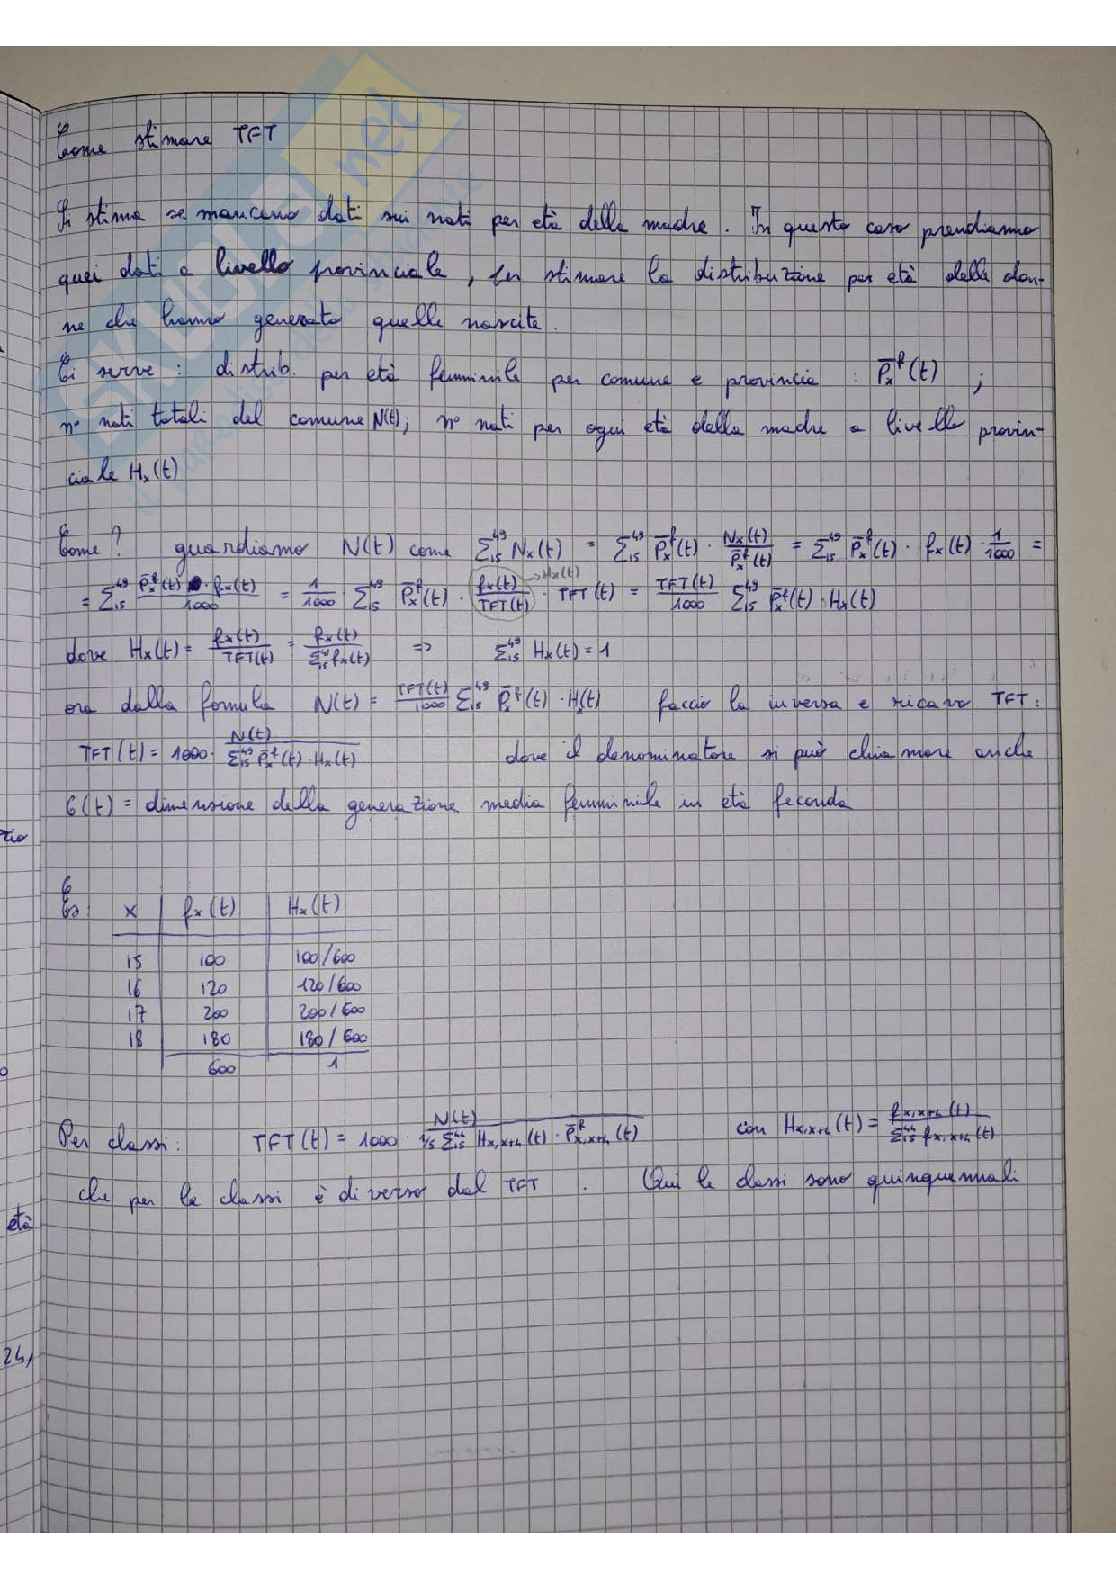 Come stimare TFT
Si stima se mancano dati sui nati per età della madre. In questo caso prendiamo
quei dati a livello provinciale, per stimare la distribuzione per età delle don-
ne che hanno generato quelle nascite.
Ci serve: distrib. per età femminile per comune e provincia: P̄ₓᶠ(t);
n° nati totali del comune N(t); n° nati per ogni età della madre a livello provin-
ciale Hₓ(t)
Come? guardiamo N(t) come Σ₁₅⁴⁹ Nₓ(t) = Σ₁₅⁴⁹ P̄ₓᶠ(t) · Nₓ(t)/P̄ₓᶠ(t) = Σ₁₅⁴⁹ P̄ₓᶠ(t) · fₓ(t) · 1/1000 =
= Σ₁₅⁴⁹ P̄ₓᶠ(t) · fₓ(t)/1000 = 1/1000 Σ₁₅⁴⁹ P̄ₓᶠ(t) · fₓ(t)/TFT(t) → Hₓ(t) · TFT(t) = TFT(t)/1000 Σ₁₅⁴⁹ P̄ₓᶠ(t) · Hₓ(t)
dove Hₓ(t) = fₓ(t)/TFT(t) = fₓ(t)/Σ₁₅⁴⁹ fₓ(t) ⇒ Σ₁₅⁴⁹ Hₓ(t) = 1
ora dalla formula N(t) = TFT(t)/1000 Σ₁₅⁴⁹ P̄ₓᶠ(t) · Hₓ(t) faccio la inversa e ricavo TFT:
TFT(t) = 1000 · N(t)/Σ₁₅⁴⁹ P̄ₓᶠ(t) · Hₓ(t) dove il denominatore si può chiamare anche
G(t) = dimensione della generazione media femminile in età feconda
Es: x fₓ(t) Hₓ(t)
15 100 100/600
16 120 120/600
17 200 200/600
18 180 180/600
600 1
Per classi: TFT(t) = 1000 N(t)/1/5 Σ₁₅⁴⁴ Hₓ,ₓ₊₄(t) · P̄ᶠₓ,ₓ₊₄(t) con Hₓ,ₓ₊₄(t) = fₓ,ₓ₊₄(t)/Σ₁₅⁴⁴ fₓ,ₓ₊₄(t)
che per le classi è diverso dal TFT. Qui le classi sono quinquennali
età
24,
SKUOLA.net